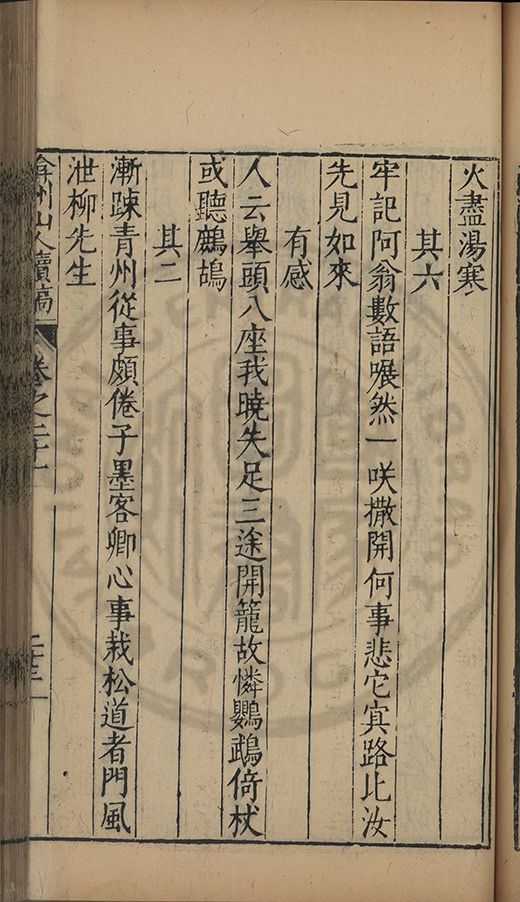 火盡湯寒
其六
牢記阿翁數語囅然一咲撒開何事悲它冥路比汝
先見如來
有感
人云舉頭八座我曉失足三途開籠故憐鸚鵡倚杖
或聽鷓鴣
其二
漸踈青州從事頗倦子墨客卿心事栽松道者門風
泄柳先生
弇州山人續稿
卷之二十